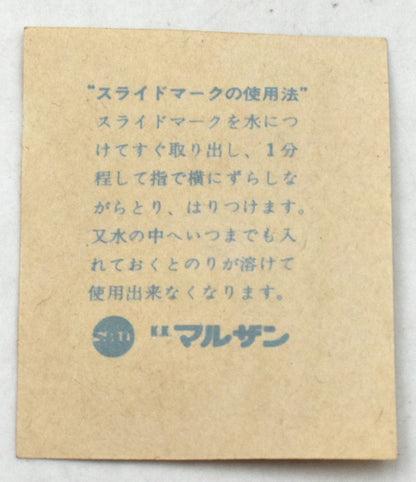 “スライドマークの使用法”
スライドマークを水につ
けてすぐ取り出し、1分
程して指で横にずらしな
がらとり、はりつけます。
又水の中へいつまでも入
れておくとのりが溶けて
使用出来なくなります。
マルザン